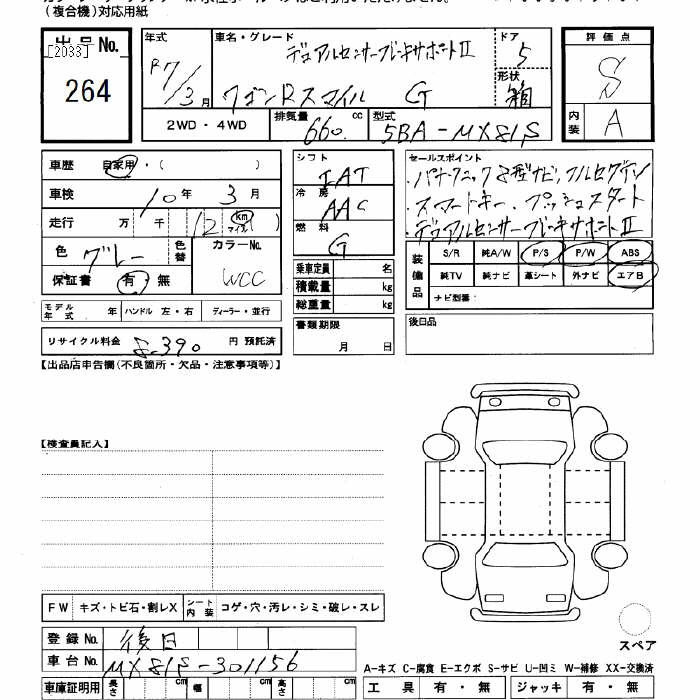 (複合機)対応用紙
出品No. [2033] 264
年式 R7/3月
車名・グレード デュアルセンサーブレーキサポートⅡ
ワゴンRスマイル G
ドア 5
形状 箱
評価点 S
内装 A
2WD・4WD 排気量 660 cc 型式 5BA-MX81S
車歴 自家用・( )
車検 10年 3月
走行 万 千 12 km マイル
色 グレー 色替 カラーNo. WCC
保証書 有・無
モデル年式 年 ハンドル 左・右 ディーラー・並行
リサイクル料金 8,390 円 預託済
シフト IAT
冷房 AAC
燃料 G
乗車定員 名
積載量 kg
総重量 kg
書類期限 月 日
セールスポイント
・パナソニック8型ナビ、フルセグTV
・スマートキー、プッシュスタート
・デュアルセンサーブレーキサポートⅡ
装備品 S/R 純A/W P/S P/W ABS
純TV 純ナビ 革シート 外ナビ エアB
ナビ型番:
後日品
【出品店申告欄(不良箇所・欠品・注意事項等)】
【検査員記入】
FW キズ・トビ石・割レX シート内装 コゲ・穴・汚レ・シミ・破レ・スレ
登録No. 後日
車台No. MX81S-301156
車庫証明用 長さ cm 幅 cm 高さ cm
スペア
A-キズ C-腐食 E-エクボ S-サビ U-凹ミ W-補修 XX-交換済
工具 有・無 ジャッキ 有・無